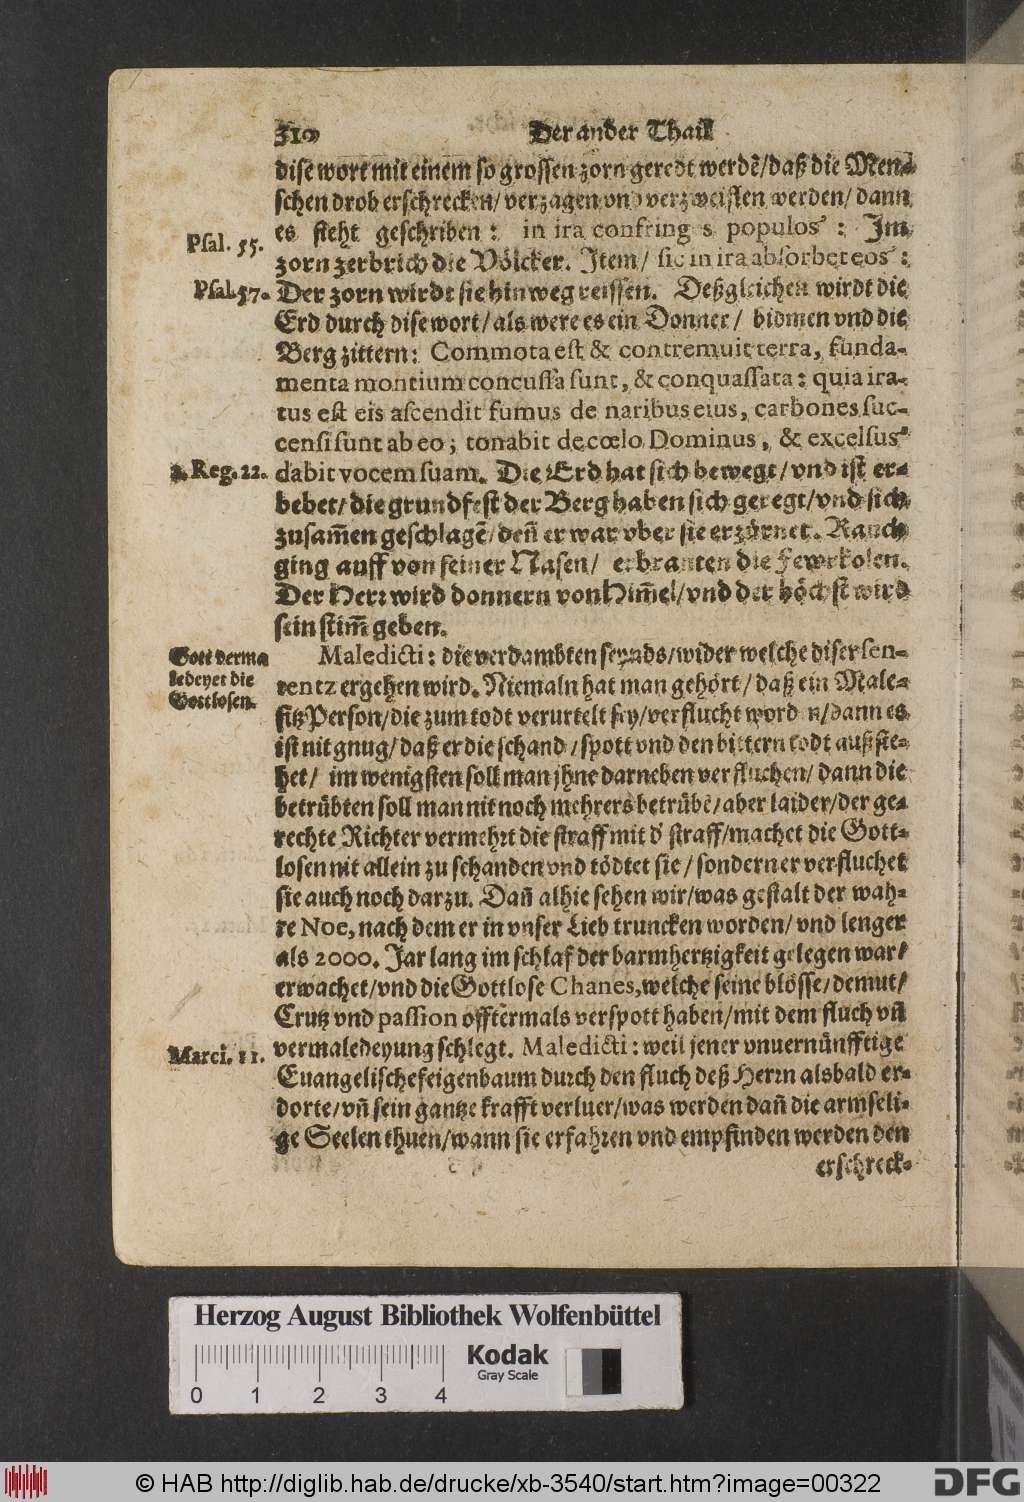 310 Der ander Thail
dise wort mit einem so grossen zorn geredt werdē/daß die Men-
schen drob erschrecken/verzagen vnd verzweiflen werden/dann
es steht geschriben: in ira confringes populos: Im
Psal. 55.
zorn zerbrich die Völcker. Item/ sic in ira absorbet eos:
Psal. 57. Der zorn wirdt sie hinweg reissen. Deßgleichen wirdt die
Erd durch dise wort/als were es ein Donner/ bidmen vnd die
Berg zittern: Commota est & contremuit terra, funda-
menta montium concussa sunt, & conquassata: quia ira-
tus est eis ascendit fumus de naribus eius, carbones suc-
censi sunt ab eo; tonabit de cœlo Dominus, & excelsus
2. Reg. 22. dabit vocem suam. Die Erd hat sich bewegt/vnd ist er-
bebet/die grundfest der Berg haben sich geregt/vnd sich
zusam̄en geschlagē/den̄ er war vber sie erzürnet. Rauch
ging auff von seiner Nasen/ erbranten die Fewrkolen.
Der Herr wird donnern von Him̄el/vnd der höchst wird
sein stim̄ geben.
Gott verma
ledeyet die
Gottlosen.
Maledicti: die verdambten seynds/wider welche diser sen-
tentz ergehen wird. Niemaln hat man gehört/daß ein Male-
fitzPerson/die zum todt verurtelt sey/verflucht worden/dann es
ist nit gnug/daß er die schand/spott vnd den bittern todt außste-
het/ im wenigsten soll man jhne darneben verfluchen/dann die
betrübten soll man nit noch mehrers betrübē/aber laider/der ge-
rechte Richter vermehrt die straff mit d' straff/machet die Gott-
losen nit allein zu schanden vnd tödtet sie/sonder er verfluchet
sie auch noch darzu. Dan̄ alhie sehen wir/was gestalt der wah-
re Noe, nach dem er in vnser Lieb truncken worden/vnd lenger
als 2000. Jar lang im schlaf der barmhertzigkeit gelegen war/
erwachet/vnd die Gottlose Chanes, welche seine blösse/demut/
Crutz vnd passion offtermals verspott haben/mit dem fluch vn̄
Marci. 11. vermaledeyung schlegt. Maledicti: weil jener vnuernünfftige
Euangelische feigenbaum durch den fluch deß Herrn alsbald er-
dorte/vn̄ sein gantze krafft verluer/was werden dan̄ die armseli-
ge Seelen thuen/wann sie erfahren vnd empfinden werden den
erschreck-
Herzog August Bibliothek Wolfenbüttel
0 1 2 3 4
Kodak
Gray Scale
© HAB http://diglib.hab.de/drucke/xb-3540/start.htm?image=00322
DFG